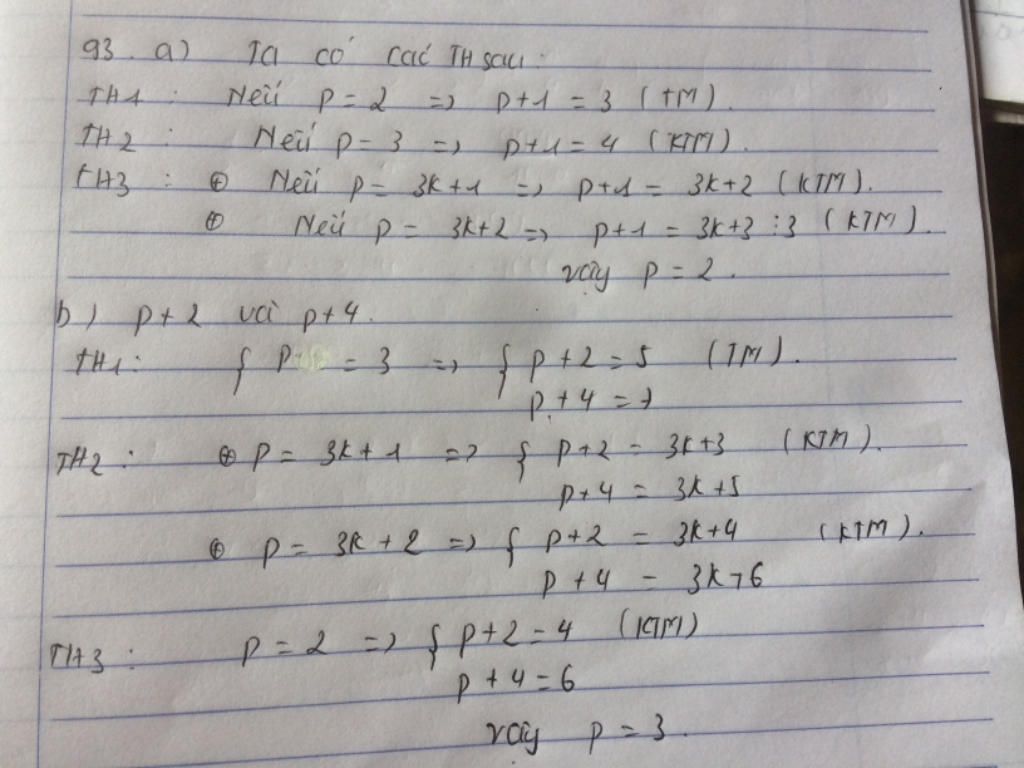 93. a) Ta có các TH sau:
TH1: Nếu p = 2 => p+1 = 3 (TM).
TH2: Nếu p = 3 => p+1 = 4 (KTM).
TH3: ⊕ Nếu p = 3k+1 => p+1 = 3k+2 (KTM).
⊕ Nếu p = 3k+2 => p+1 = 3k+3 ⋮3 (KTM).
vậy p = 2.
b) p+2 và p+4.
TH1: { p = 3 => { p+2 = 5 (TM).
p+4 = 7
TH2: ⊕ p = 3k+1 => { p+2 = 3k+3 (KTM).
p+4 = 3k+5
⊕ p = 3k+2 => { p+2 = 3k+4 (KTM).
p+4 = 3k+6
TH3: p = 2 => { p+2 = 4 (KTM)
p+4 = 6
vậy p = 3.